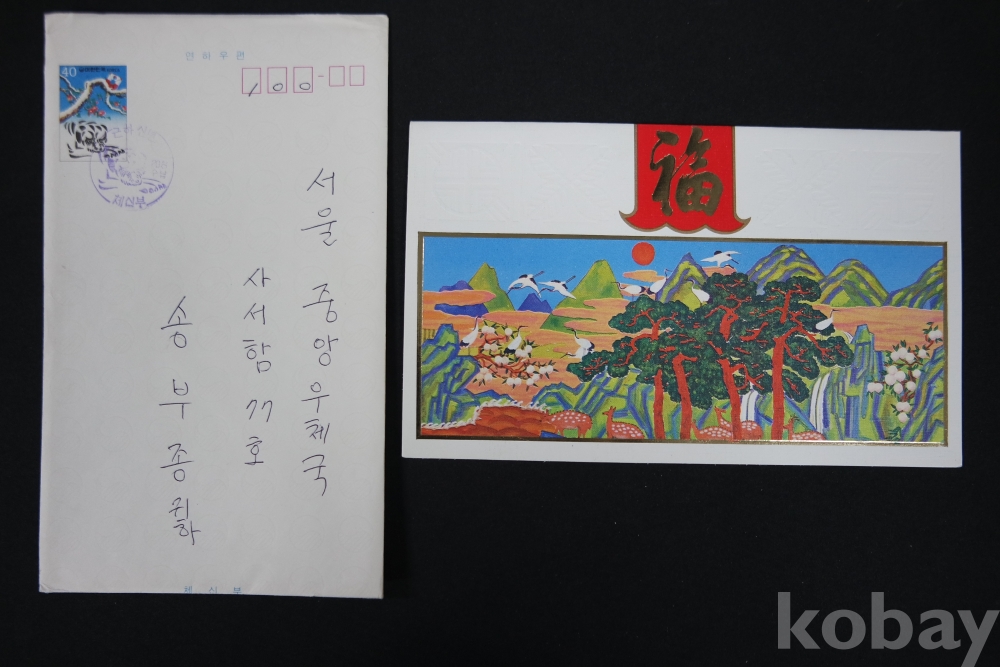 연하우편
40
100
연하
체신부
서울 중앙우체국
사서함 77호
송부종 귀하
체신부
福
kobay